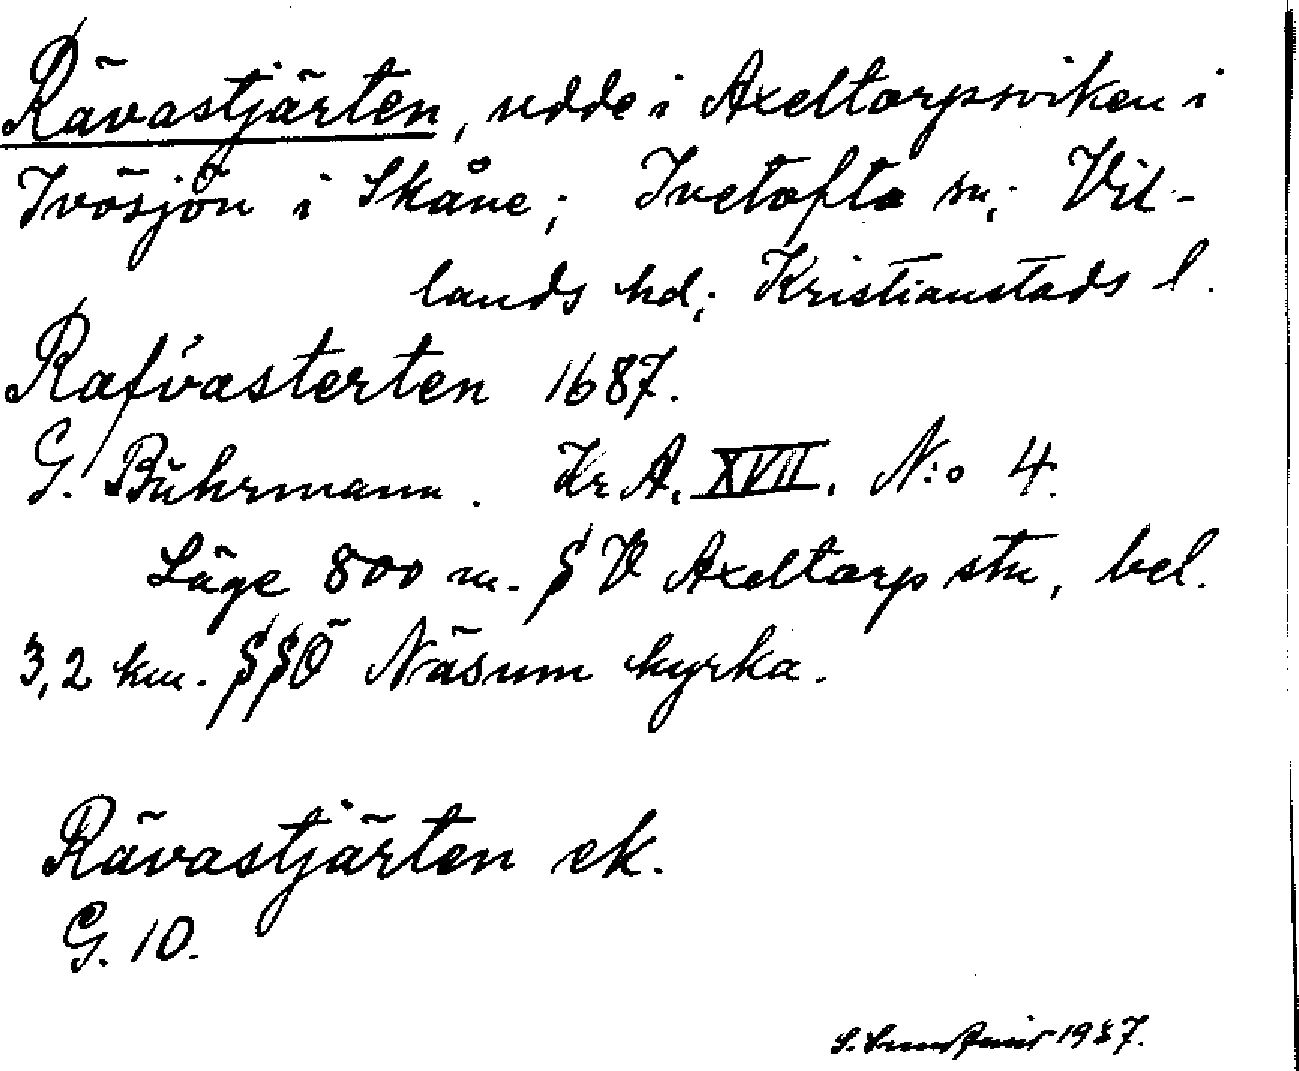 Rävastjärten, udde i Axeltorpsviken i
Ivösjön i Skåne; Ivetofta sn; Vil-
lands hd; Kristianstads l.
Rafvasterten 1687.
G. Buhrmann. Kr A. XVII. N:o 4.
Läge 800 m. SV Axeltorp stn, bel.
3,2 km. SSÖ Näsum kyrka.
Rävastjärten ek.
G. 10.
S. 1937.